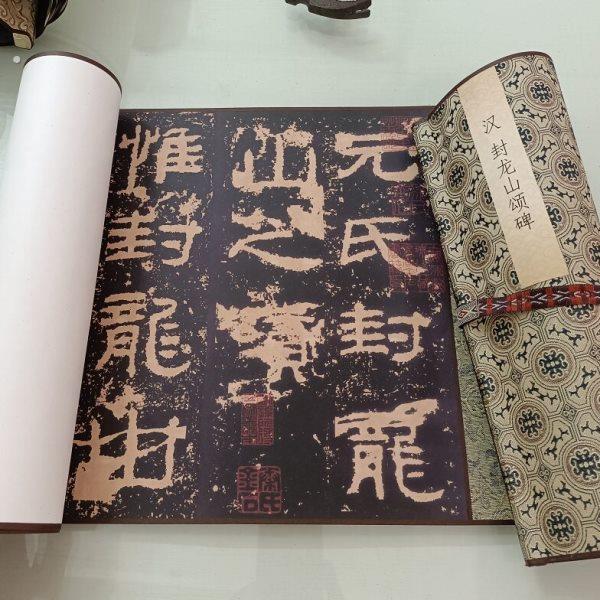 汉 封龙山颂碑
元氏封龍
山之頌
惟封龍山